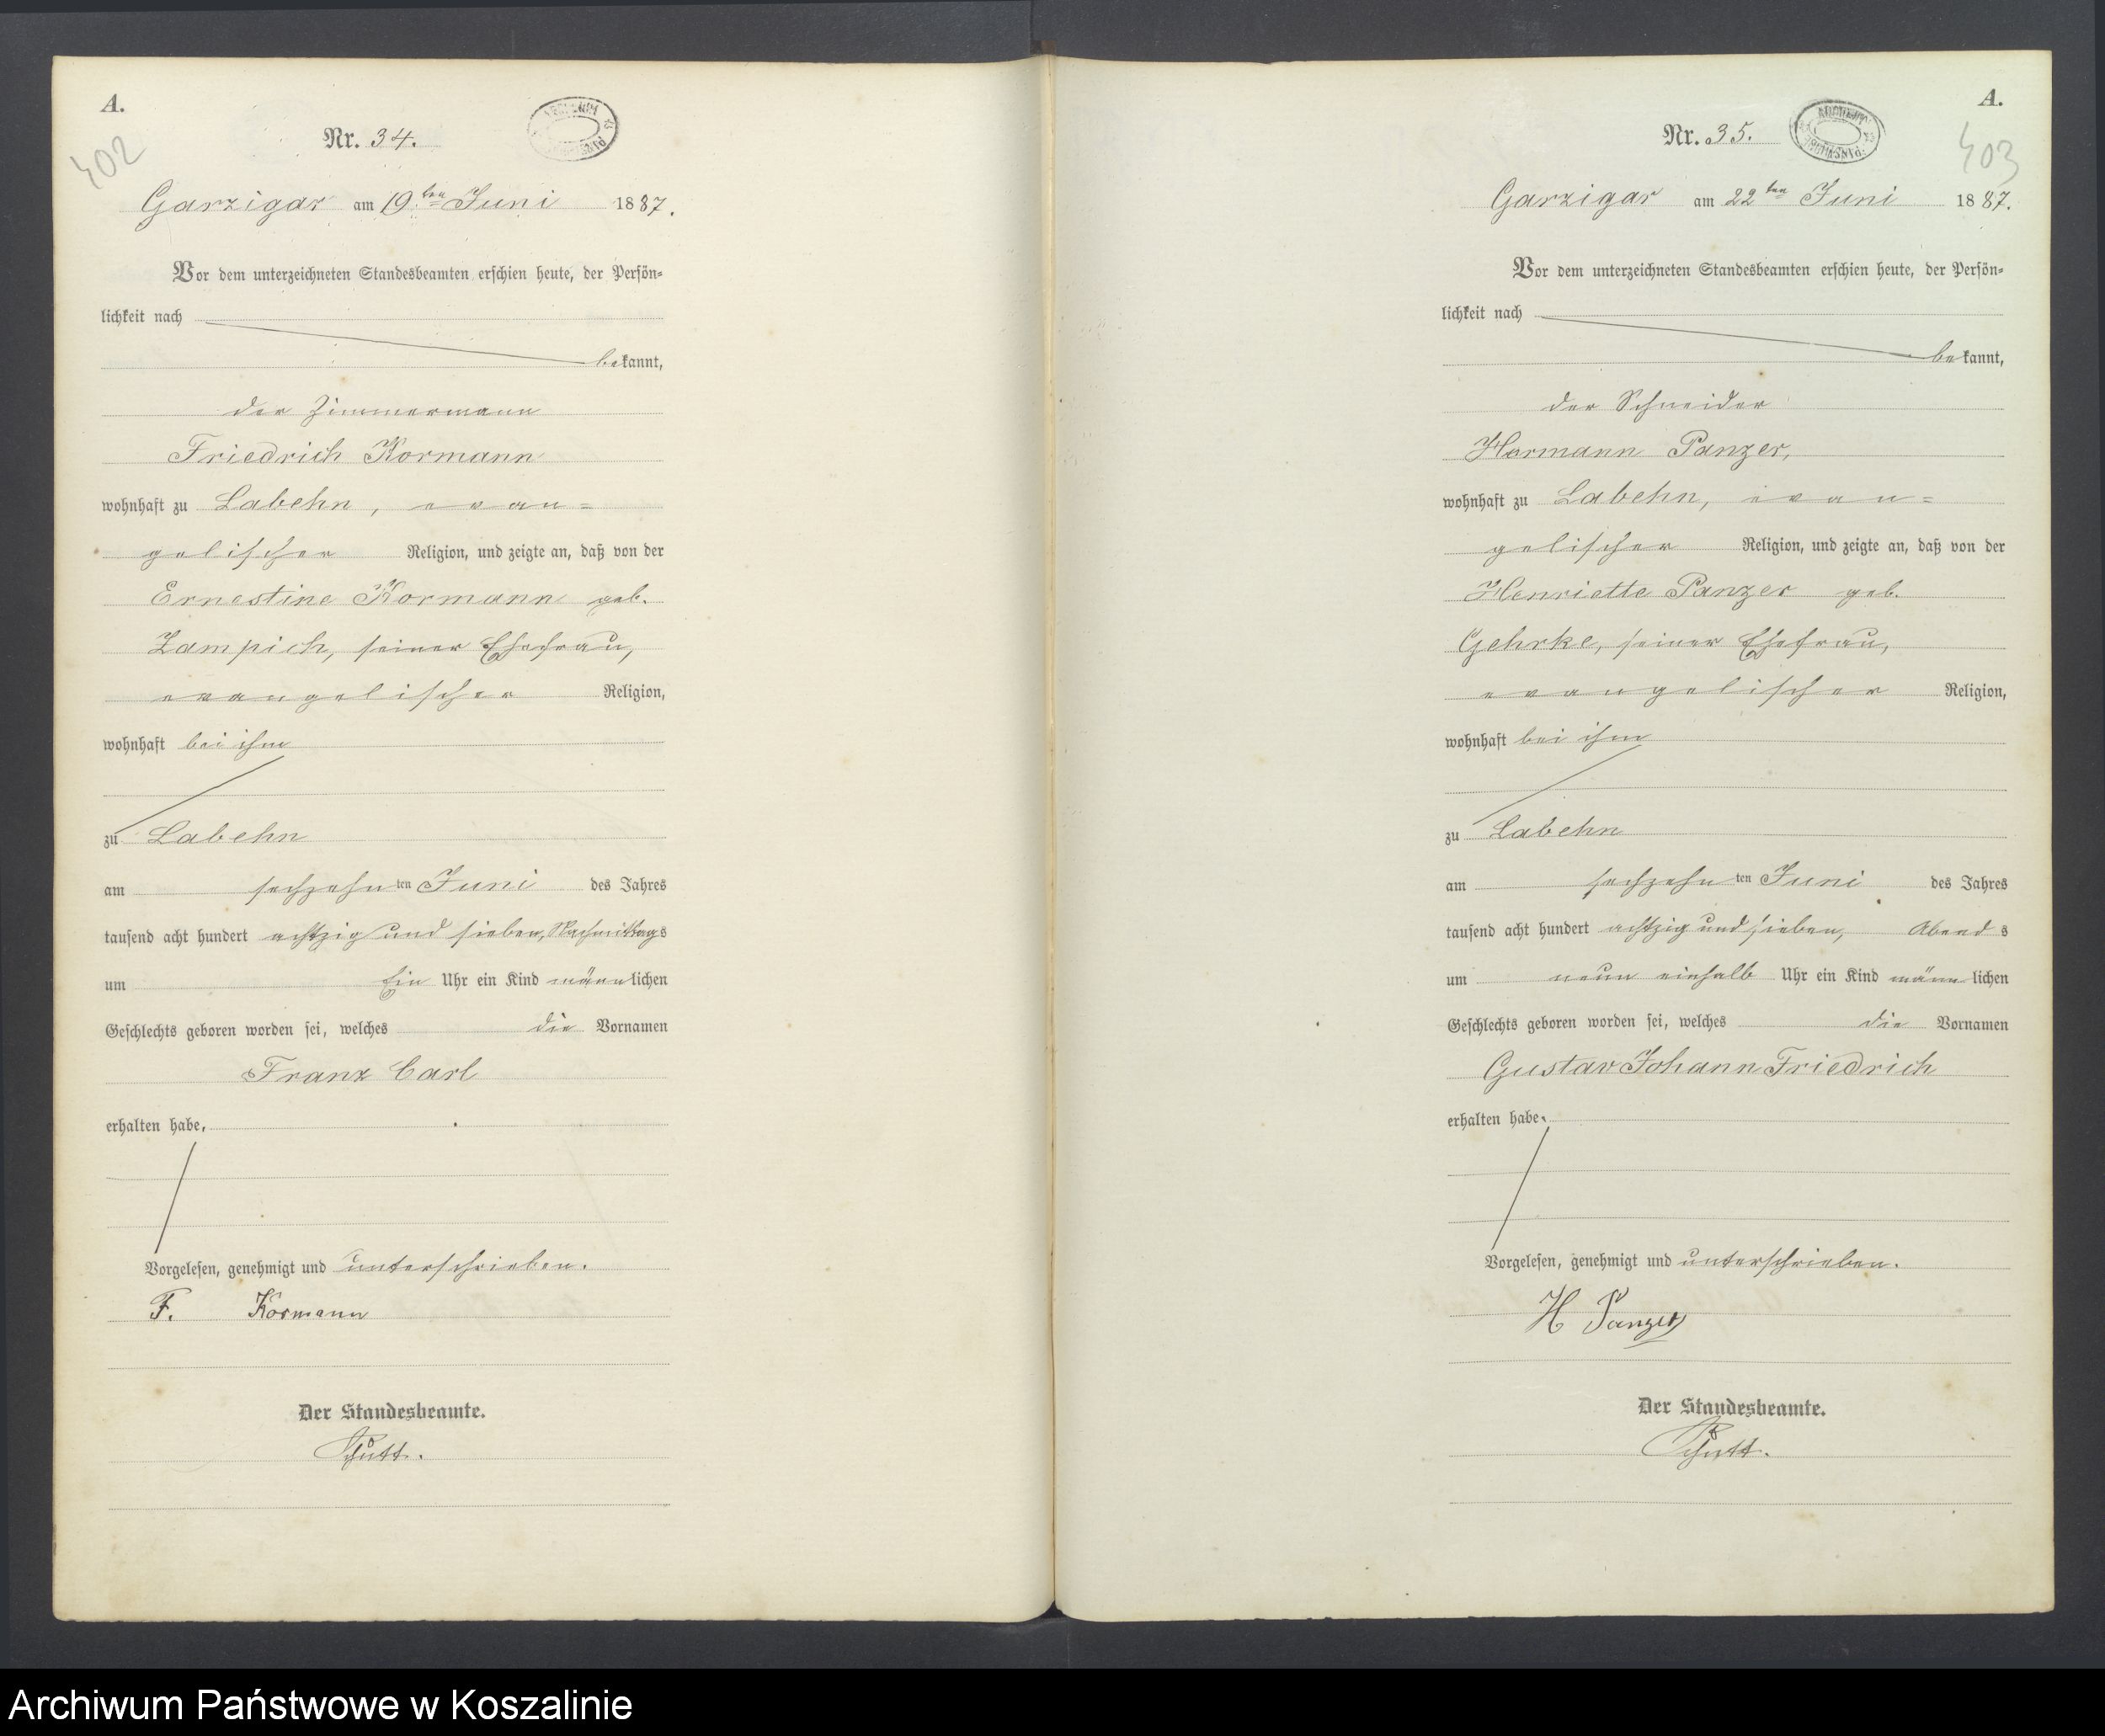 A.
402
Nr. 34.
Garzigar am 19ten Juni 1887.
Vor dem unterzeichneten Standesbeamten erschien heute, der Persön-
lichkeit nach
bekannt,
der Zimmermann
Friedrich Kormann
wohnhaft zu Labehn, evan=
gelischer Religion, und zeigte an, daß von der
Ernestine Kormann geb.
Lampich, seiner Ehefrau,
evangelischer Religion,
wohnhaft bei ihm
zu Labehn
am sechzehnten Juni des Jahres
tausend acht hundert achtzig und sieben, Nachmittags
um Ein Uhr ein Kind männlichen
Geschlechts geboren worden sei, welches die Vornamen
Franz Carl
erhalten habe.
Vorgelesen, genehmigt und unterschrieben.
F. Kormann
Der Standesbeamte.
Schütt.
A.
403
Nr. 35.
Garzigar am 22ten Juni 1887.
Vor dem unterzeichneten Standesbeamten erschien heute, der Persön-
lichkeit nach
bekannt,
der Schneider
Hermann Panzer,
wohnhaft zu Labehn, evan=
gelischer Religion, und zeigte an, daß von der
Henriette Panzer geb.
Gehrke, seiner Ehefrau,
evangelischer Religion,
wohnhaft bei ihm
zu Labehn
am sechzehnten Juni des Jahres
tausend acht hundert achtzig und sieben, Abends
um neun einhalb Uhr ein Kind männlichen
Geschlechts geboren worden sei, welches die Vornamen
Gustav Johann Friedrich
erhalten habe.
Vorgelesen, genehmigt und unterschrieben.
H Panzer
Der Standesbeamte.
Schütt.
Archiwum Państwowe w Koszalinie